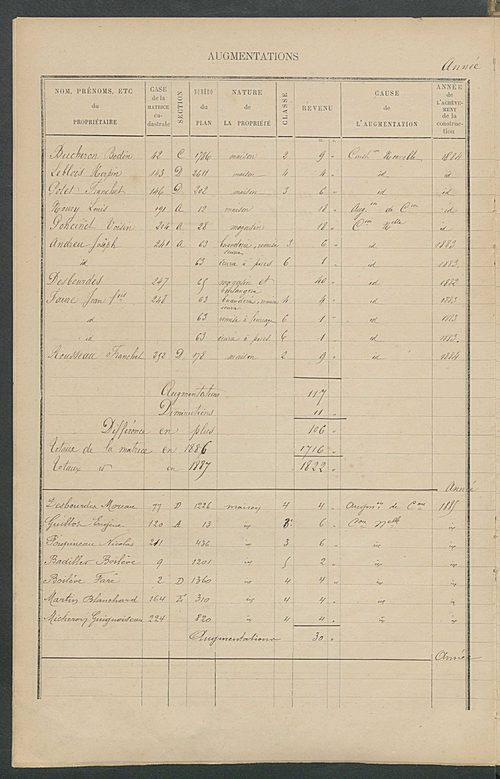 AUGMENTATIONS
Année
NOM, PRÉNOMS, ETC du PROPRIÉTAIRE | CASE de la MATRICE ca-dastrale | SECTION | NUMÉRO du PLAN | NATURE de LA PROPRIÉTÉ | CLASSE | REVENU | CAUSE de L'AUGMENTATION | ANNÉE DE L'ACHÈVE-MENT de la construc-tion
Bucheron Bodin 42 C 1716 maison 2 9 " Nouvelle 1884
Leblois 143 D 2611 maison 4 4 " id id
146 D 202 maison 3 6 " id id
Louis 191 A 12 maison 18 " Aug.on de Con id
Voisin 214 A 28 magasin 18 " Con Nelle id
Andrieu Joseph 241 A 63 3 6 " id 1883
id 63 écurie à porcs 6 1 " id 1883
Desbourdes 247 65 magasin et boulangerie 40 " id 1882
Jean fils 248 63 4 4 " id 1883
id 63 remise à 6 1 " id 1883
id 63 écurie à porcs 6 1 " id 1883
Rousseau Franchet 252 D 178 maison 2 9 " id 1884
Augmentations 117
Diminutions 11 "
Différence en plus 106 "
totaux de la matrice en 1886 1716 "
totaux id en 1887 1822 "
Année
Desbourdes Moreau 77 D 1226 maison 4 4 " Augon de Con 1885
Guillot Eugène 120 A 13 id 6 " Con Nelle id
Nicolas 211 436 id 3 6 " id id
Boilève 9 1201 id 5 2 " id id
Boilève 2 D 1360 id 4 4 " id id
Martin Blanchard 164 E 310 id 4 4 " id id
Micheron 224 820 id 4 4 " id id
Augmentations 30 "
Année